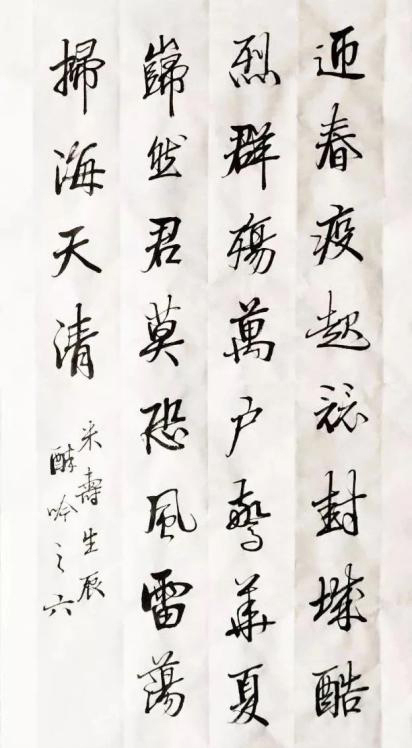 迎春疫起封城酷
烈群殤萬户驚華夏
巋然君莫恐風雷蕩
掃海天清
米壽生辰
醉吟之六